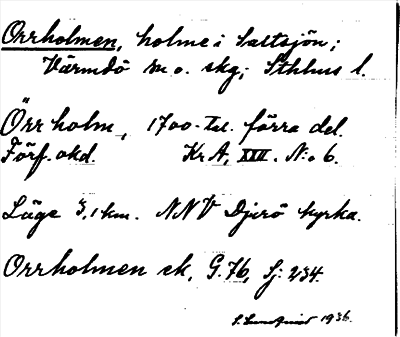 Orrholmen, holme i Saltsjön;
Värmdö sn o. skg; Sthlms l.
Örrholm, 1700-tal. förra del.
Förf. okd. Kr A, XIII. N:o 6.
Läge 3,1 km. NNV Djurö kyrka.
Orrholmen ek. G. 76, Sj: 234.
S. Lundqvist 1936.